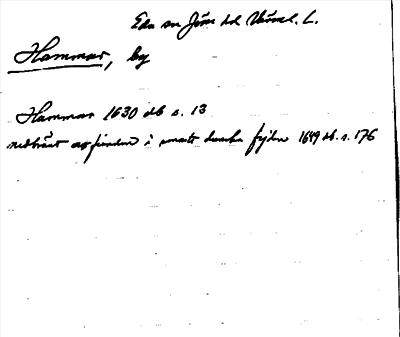 Eda sn Jösse hd Värml. L.
Hammar, by
Hammar 1630 db s. 13
nedbränt av fienden i senaste danske fejden 1649 db. s. 176